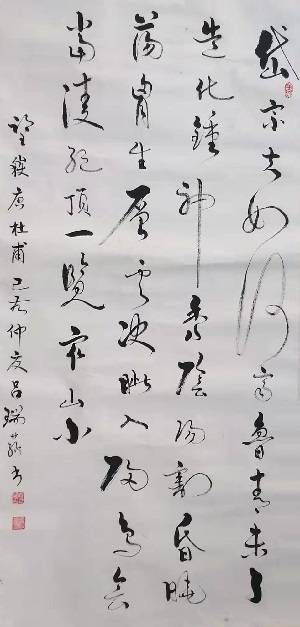 岱宗夫如何齊魯青未了
造化鍾神秀陰陽割昏曉
蕩胸生層雲決眦入歸鳥會
當凌絕頂一覽衆山小
望嶽唐杜甫己亥仲夏呂瑞書